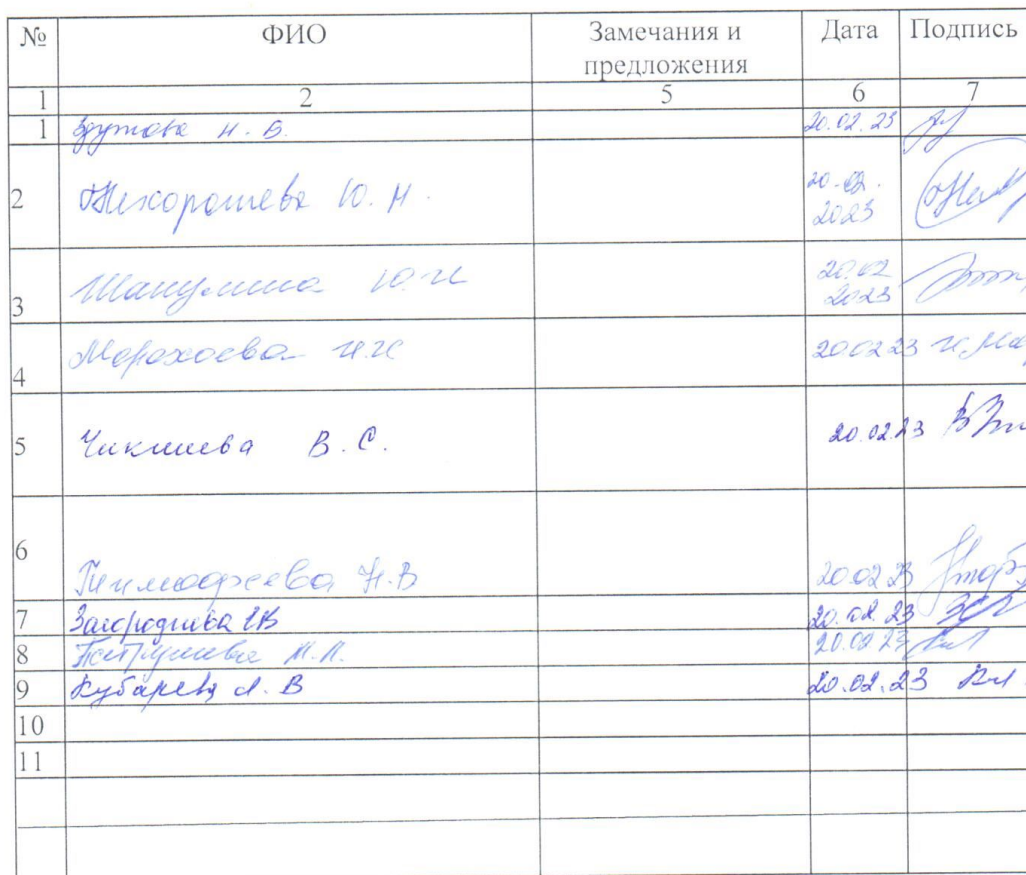 № ФИО Замечания и предложения Дата Подпись
1 2 5 6 7
1 Н. Б. 20.02.23
2 Нехорошева Ю. Н. 20.02.2023
3 Шакулина Ю.Н 20.02 2023
4 Морохоева Н.Н 20.02 23
5 Чикишева В. С. 20.02.23
6 Тимофеева Н.В 20.02 23
7 Загороднева 20.02.23
8 20.02 23
9 Кубарева Л. В 20.02.23
10
11